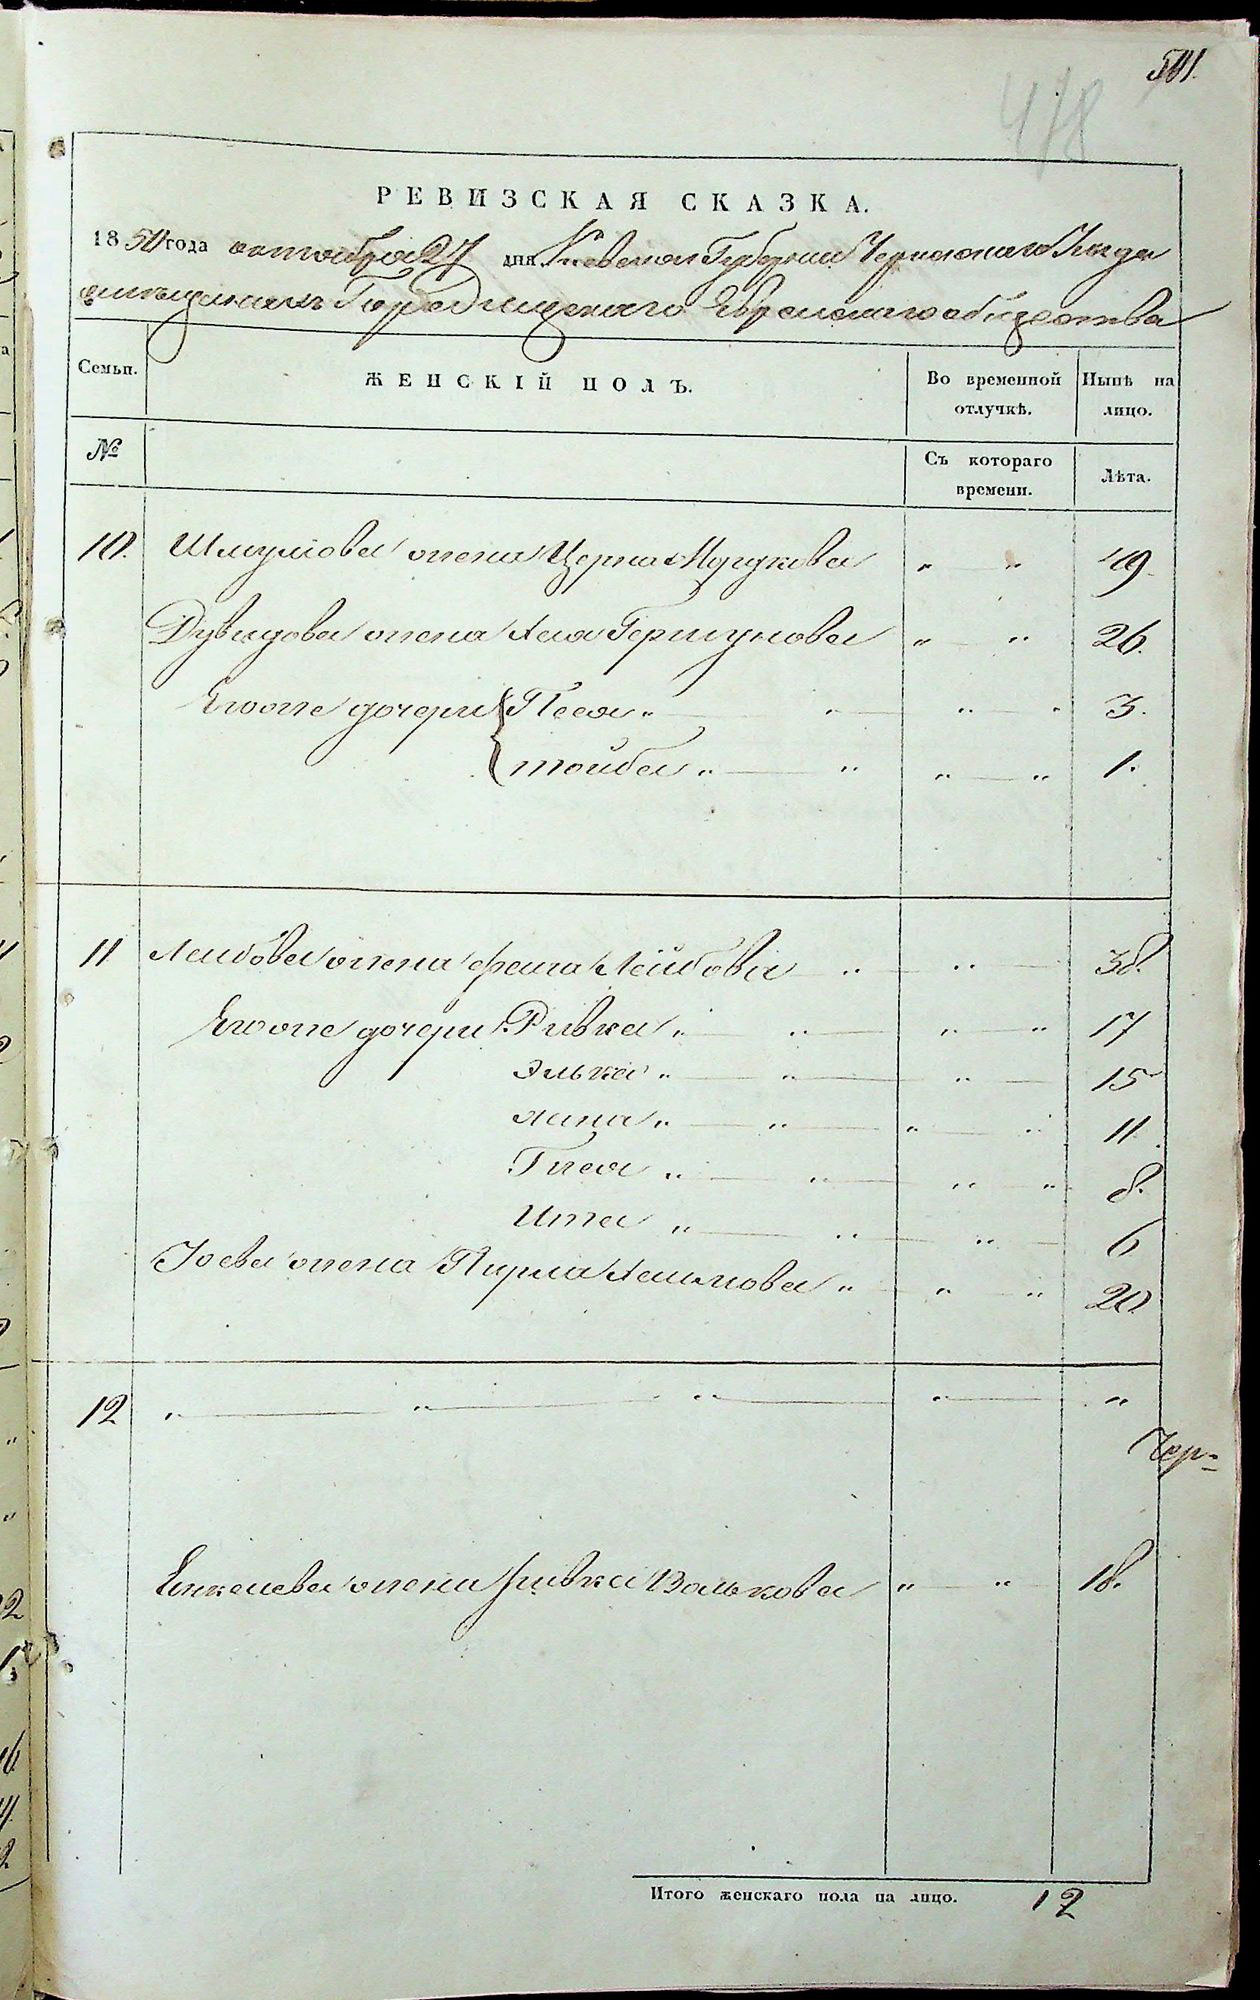 501.
478
РЕВИЗСКАЯ СКАЗКА.
1850 года октября 27 дня Киевской Губернии Черкаскаго Уезда
Городищенскаго Еврейскаго общества
Семьи. ЖЕНСКІЙ ПОЛЪ. Во временной отлучкѣ. Нынѣ на лицо.
№ Съ котораго времени. Лѣта.
10. Шмулова жена Черна Мордукова " " 49.
Дувидова жена Хая Гершунова " " 26.
Егоже дочери Песя " " " " 3.
тойба " " " " 1.
11 Лейбова жена Фейга Лейбова " " 38.
Егоже дочери Ривка " " " " 17
Элька " " " 15
Хана " " " " 11.
Гися " " " " 8.
Ита " " " 6
Иосева жена Пирла Хаимова " " " 20
12 " " " " "
Чер-
Янкелева жена Ривка Волькова " " 18.
Итого женскаго пола на лицо. 12